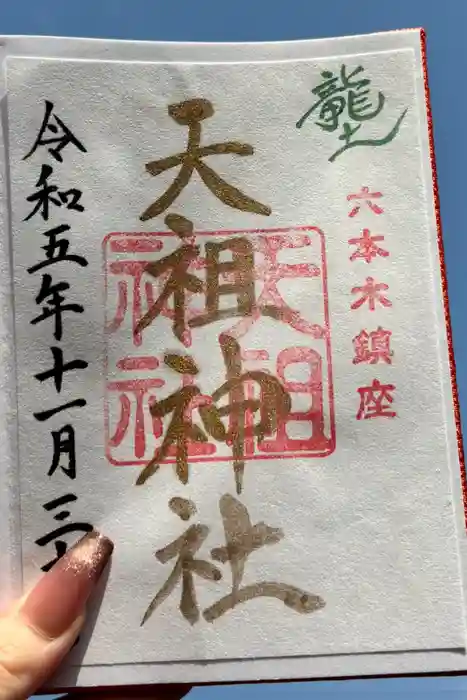 龍土
六本木鎮座
天祖神社
天祖
神社
令和五年十一月三